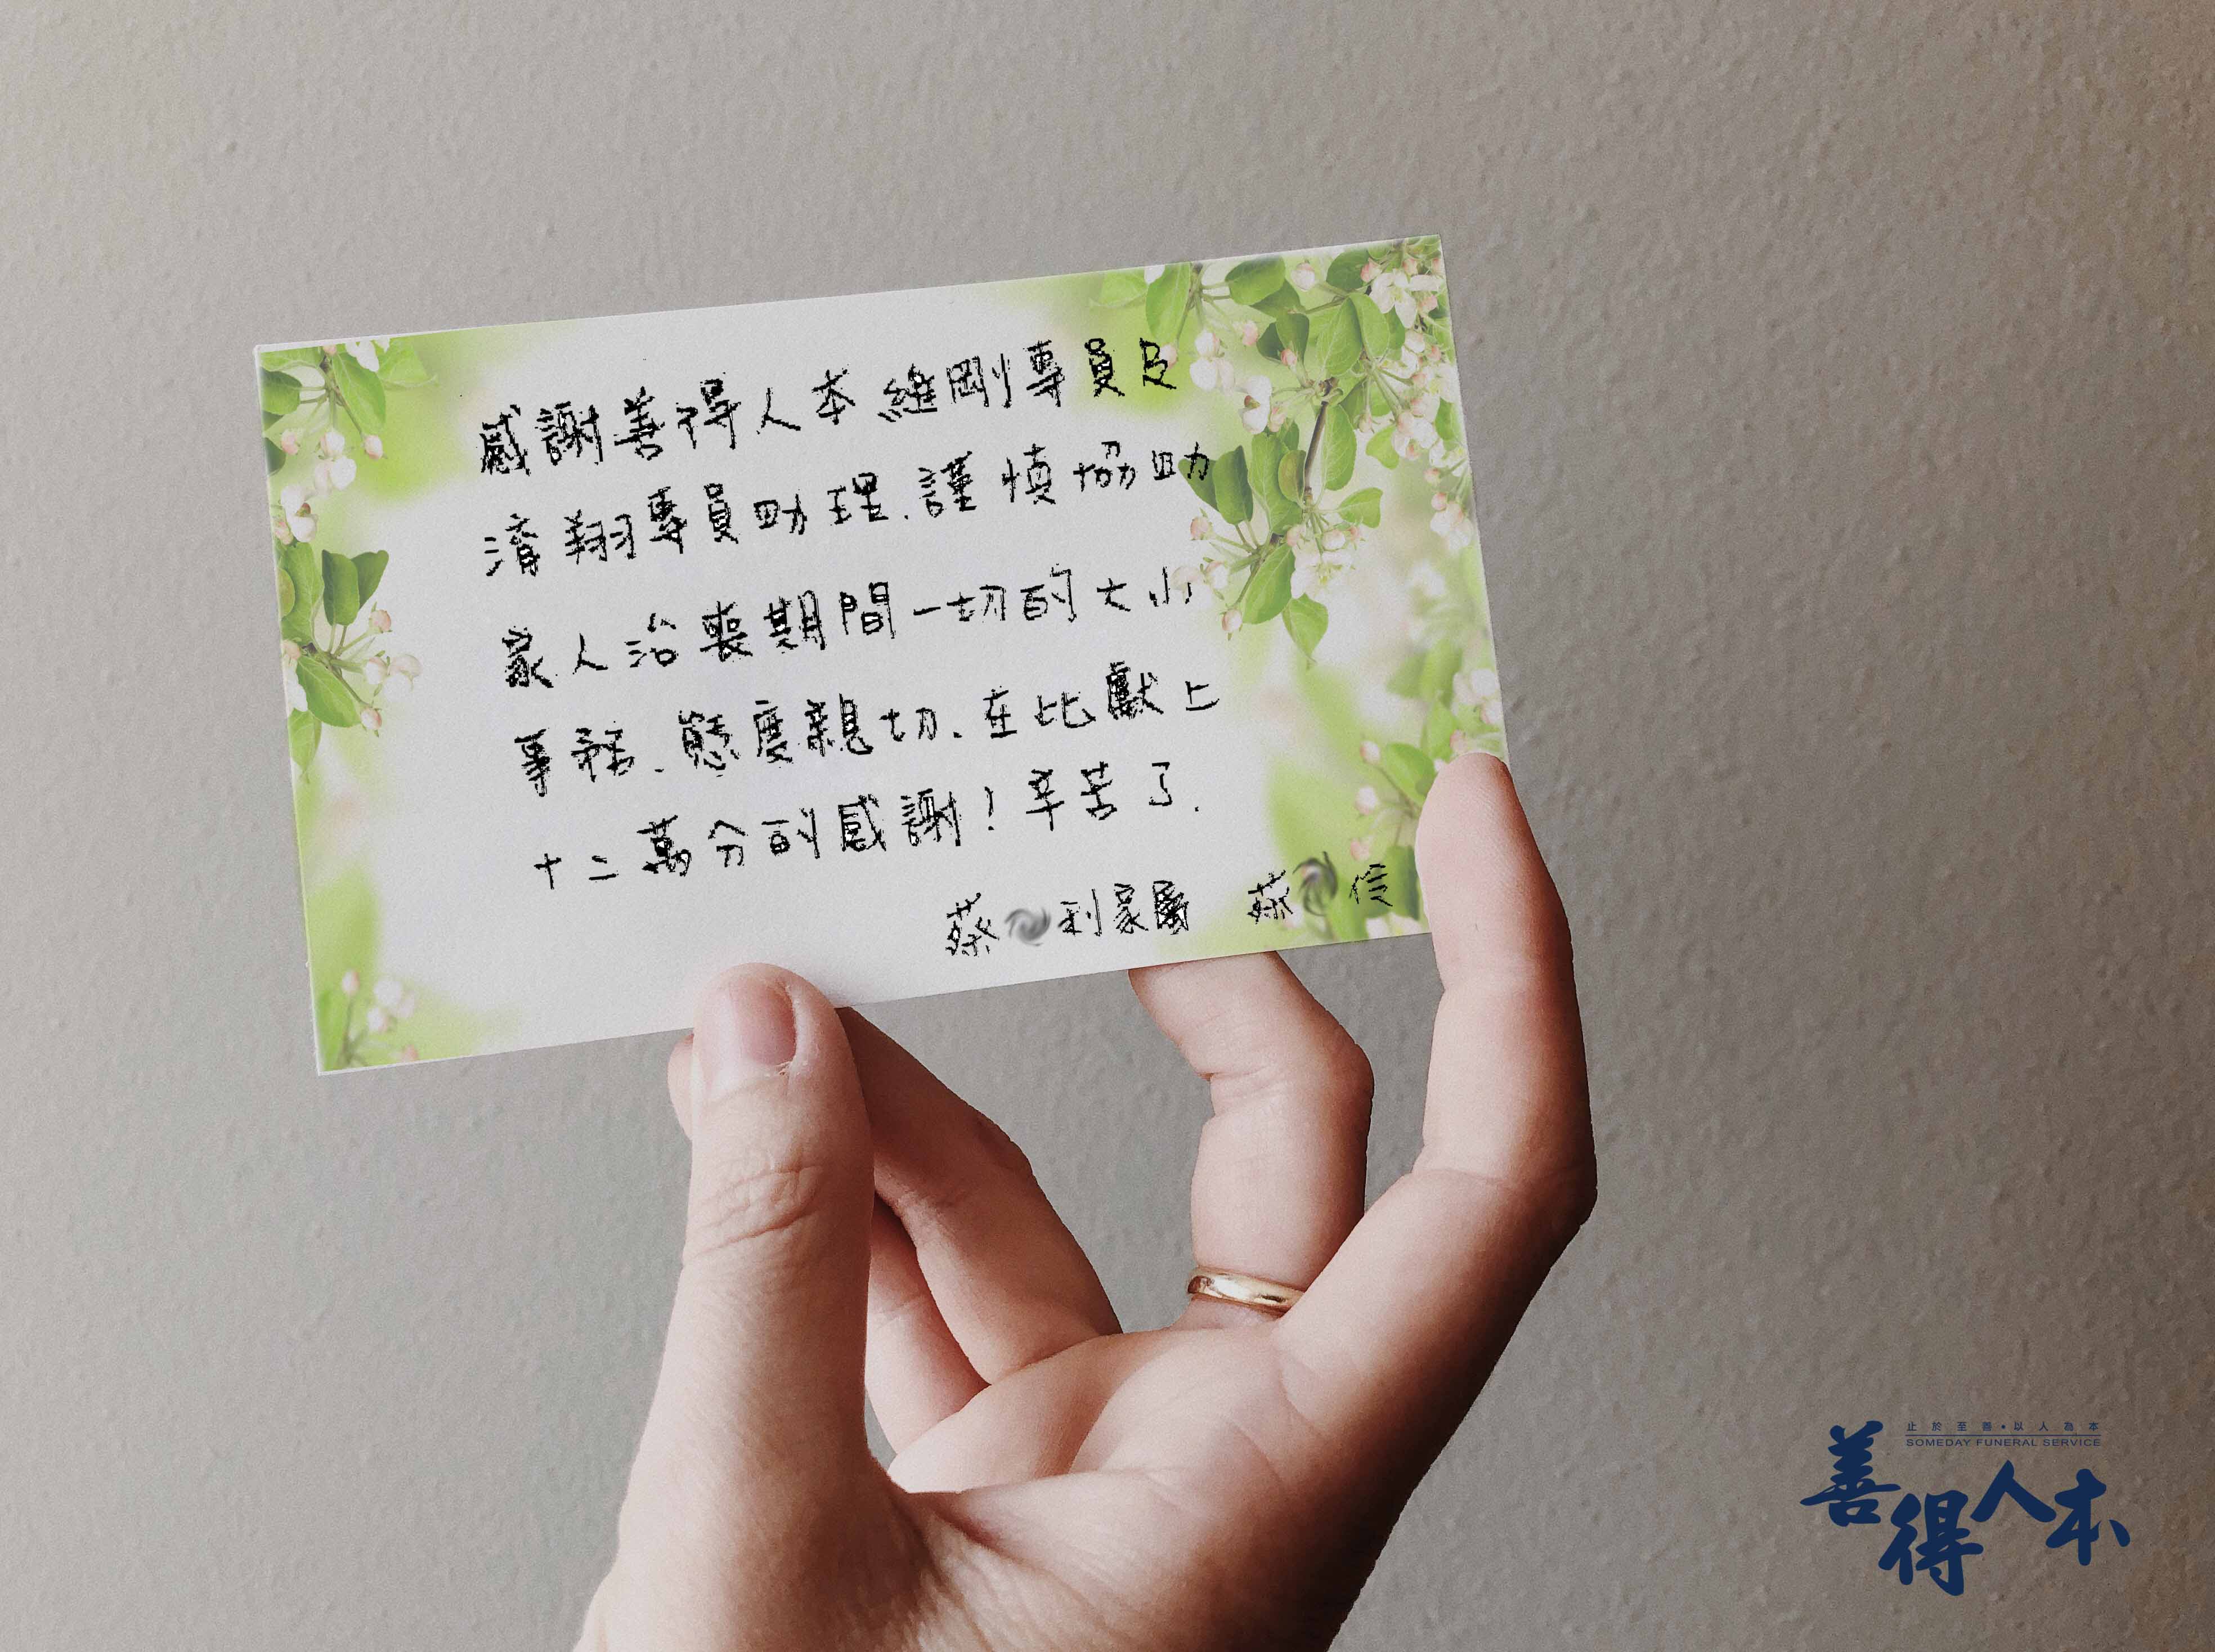 感謝善得人本維剛專員及
清翔專員助理.謹慎協助
家人治喪期間一切的大小
事務.態度親切.在此獻上
十二萬分的感謝!辛苦了.
蔡 利家屬 蔡 信
止於至善•以人為本
SOMEDAY FUNERAL SERVICE
善得人本